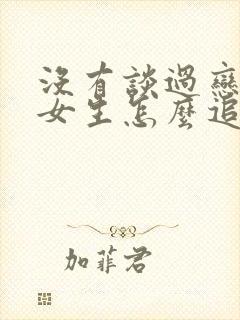 沒有談過戀
女生怎麼追
加菲君